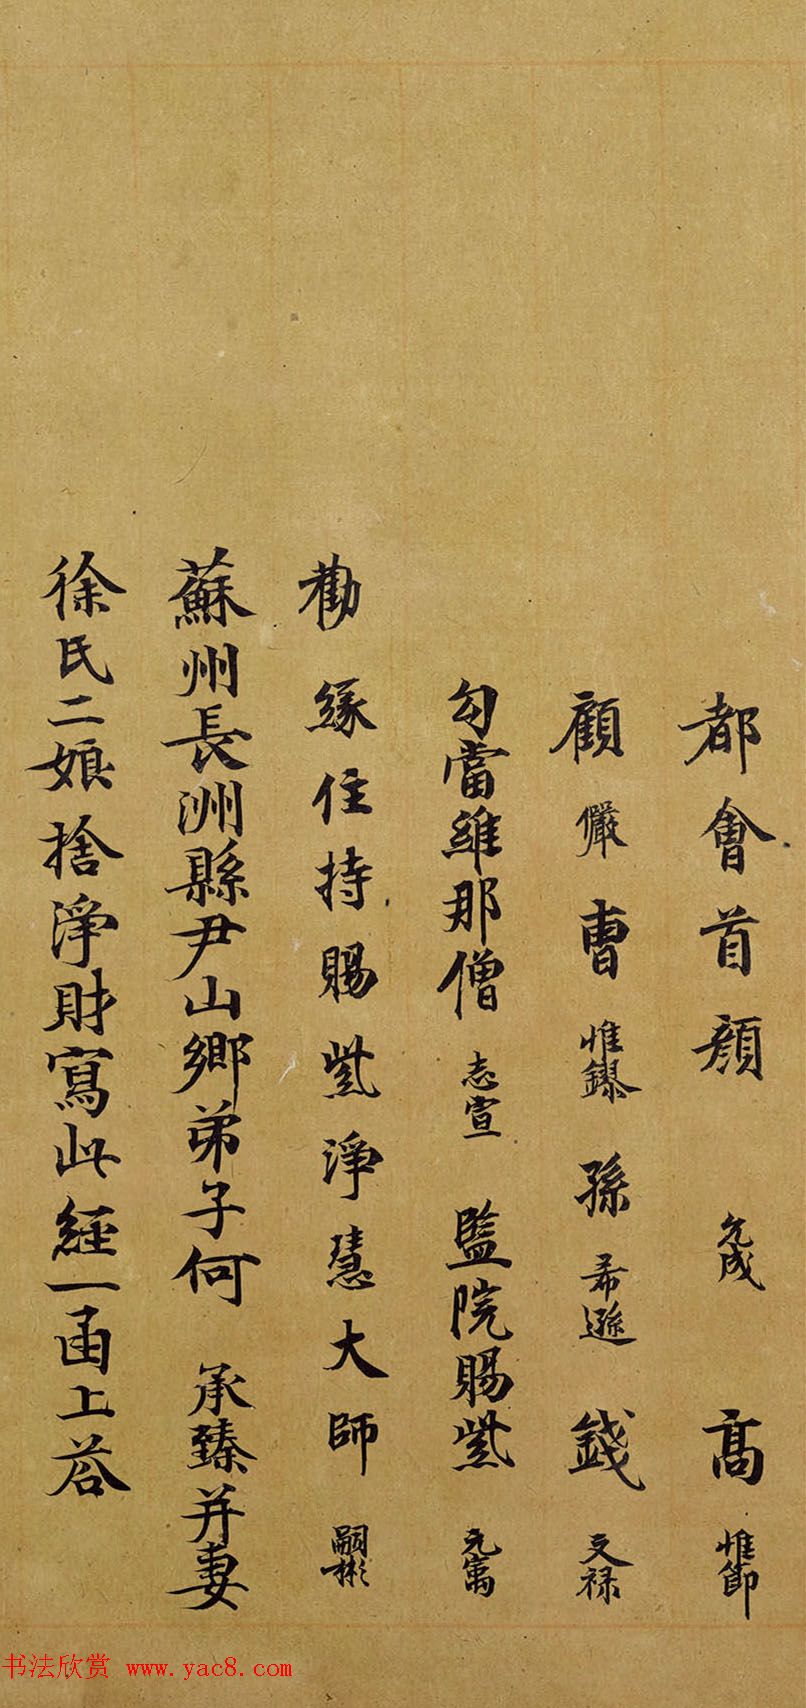 都會首顔 允成 高 惟節
顧 儼 曹 惟鏐 孫 希遜 錢 文禄
勾當維那僧 志宣 監院賜紫 元萬
勸緣住持賜紫淨慧大師 嗣彬
蘇州長洲縣尹山鄉弟子何 承臻并妻
徐氏二娘捨淨財寫此經一函上荅
书法欣赏 www.yac8.com